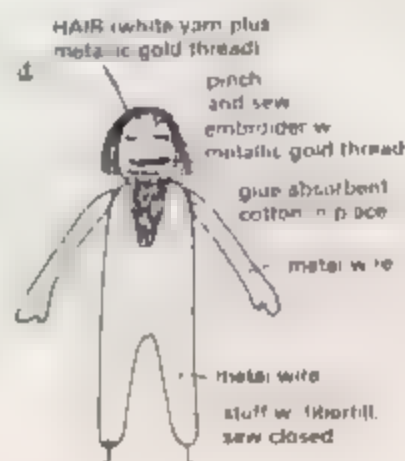 HAIR (white yarn plus
metallic gold thread)
d
pinch
and sew
embroider w
metallic gold thread
glue absorbent
cotton in place
metal wire
metal wire
stuff w. fiberfill,
sew closed